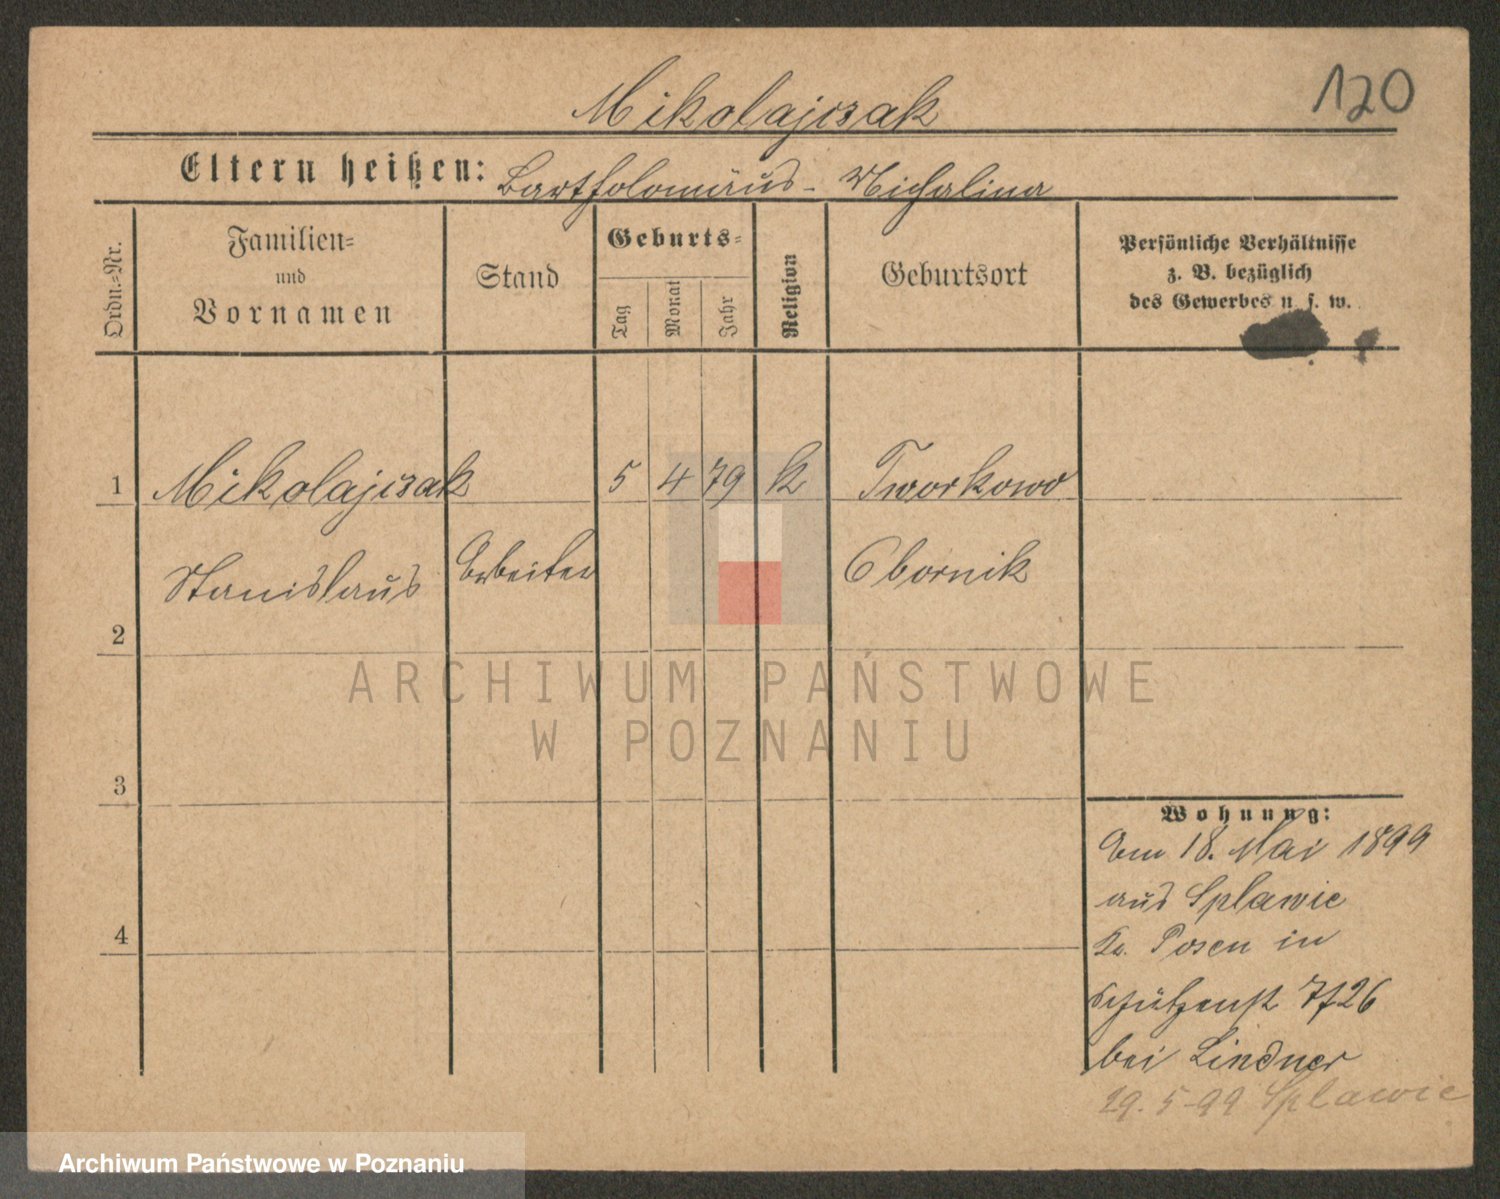 120
Mikolajczak
Eltern heißen: Bartholomäus - Michalina
Ordn.-Nr.
Familien-
und
Vornamen
Stand
Geburts-
Tag
Monat
Jahr
Religion
Geburtsort
Persönliche Verhältnisse
z. B. bezüglich
des Gewerbes u. s. w.
1 Mikolajczak 5 4 79 k Tworkowo
Stanislaus Arbeiter Obornik
2
3
4
Wohnung:
Am 18. Mai 1899
aus Splawie
Kr. Posen in
Schützenst 7/26
bei Lindner
29. 5-99 Splawie
ARCHIWUM PAŃSTWOWE
W POZNANIU
Archiwum Państwowe w Poznaniu